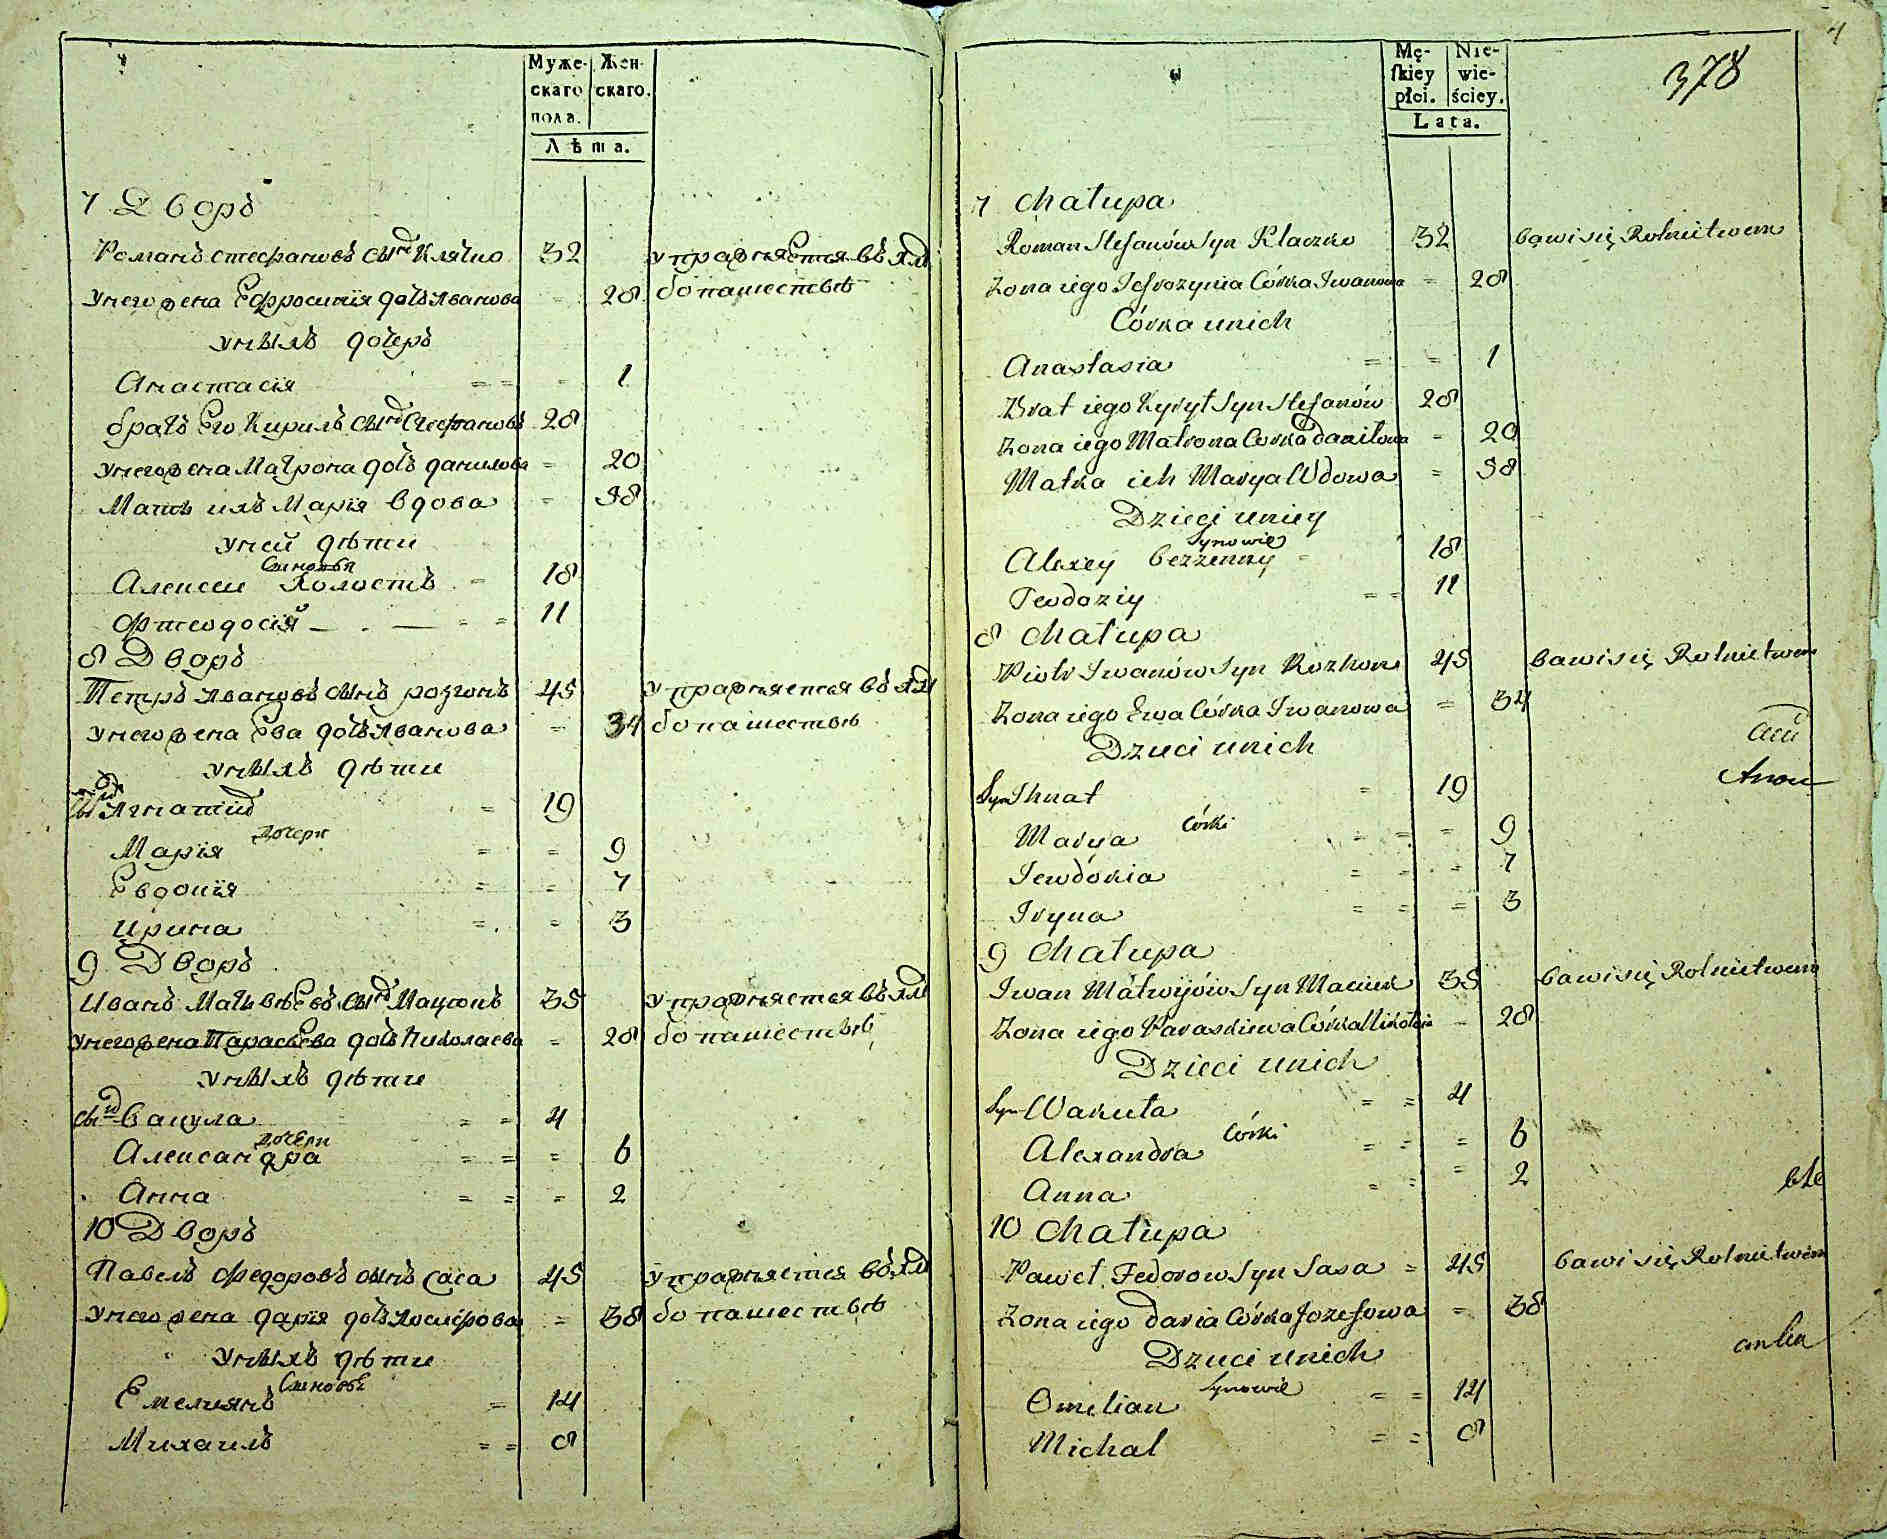 Муже- Жен-
скаго скаго.
пола.
Лѣта.
7 Дворъ
Романъ стефановъ сынъ Клячко 32 упражняется въ хлѣ
у него жена Ефросинія дочь Иванова = 28 бопашествѣ
у нихъ дочерь
Анастасія = = = 1
братъ Его Кирилъ сынъ Стефановъ 28
у него жена Матрона дочь данилова = 20
Мать ихъ Марія вдова = 58
у ней дѣти
Синовья
Алексей Холостъ = 18
Фтеодосій = = 11
8 Дворъ
Петръ Ивановъ сынъ розгонъ 45 упражняется въ хлѣ
у него жена Ева дочь Иванова = 34 бопашествѣ
у нихъ дѣти
сынъ Игнатий = 19
дочери
Марія = = 9
Евдокія = = 7
Ирина = = 3
9 Дворъ
Иванъ Матвѣевъ сынъ Мацюкъ 35 упражняется въ хлѣ
у него жена Параскева дочь Николаева = 28 бопашествѣ
у нихъ дѣти
сынъ Вакула = = 4
дочери
Александра = = = 6
Анна = = = 2
10 Дворъ
Павелъ Федоровъ сынъ Саса 45 упражняется въ хлѣ
у него жена дарія дочь Иосифова = 38 бопашествѣ
у нихъ дѣти
Синовья
Емелиянъ = 14
Михаилъ = = 8
4
378
Mę- Nie-
skiey wie-
płci. ściey.
Lata.
7 Chałupa
Roman Stefanów Syn Klaczko 32 bawi się Rolnictwem
Zona iego Jefrozynia Córka Iwanowa = 28
Córka unich
Anastasia = = 1
Brat iego Kyrył Syn Stefanów 28
Zona iego Matrona Corka daniłowa = 20
Matka ich Marya Wdowa = 58
Dzieci uniey
Synowie
Alexey bezżenny = 18
Teodoziy = = 11
8 Chałupa
Piotr Iwanów Syn Rozhon 45 bawi się Rolnictwem
Zona iego Ewa Córka Iwanowa = 34
Dzieci unich
Syn Ihnat = 19
Córki
Marya = = = 9
Jewdókia = = = 7
Iryna = = = 3
9 Chałupa
Iwan Matwijów Syn Maciuk 35 bawi się Rolnictwem
Zona iego Paraskiewa Córka Mikołaia = 28
Dzieci unich
Syn Wakuła = = 4
Córki
Alexandra = = = 6
Anna = = = 2
10 Chałupa
Paweł Fedorow Syn Sasa = 45 bawi się Rolnictwem
Zona iego daria Córka Jozefowa = 38
Dzieci unich
Synowie
Omelian = = 14
Michał = = 8